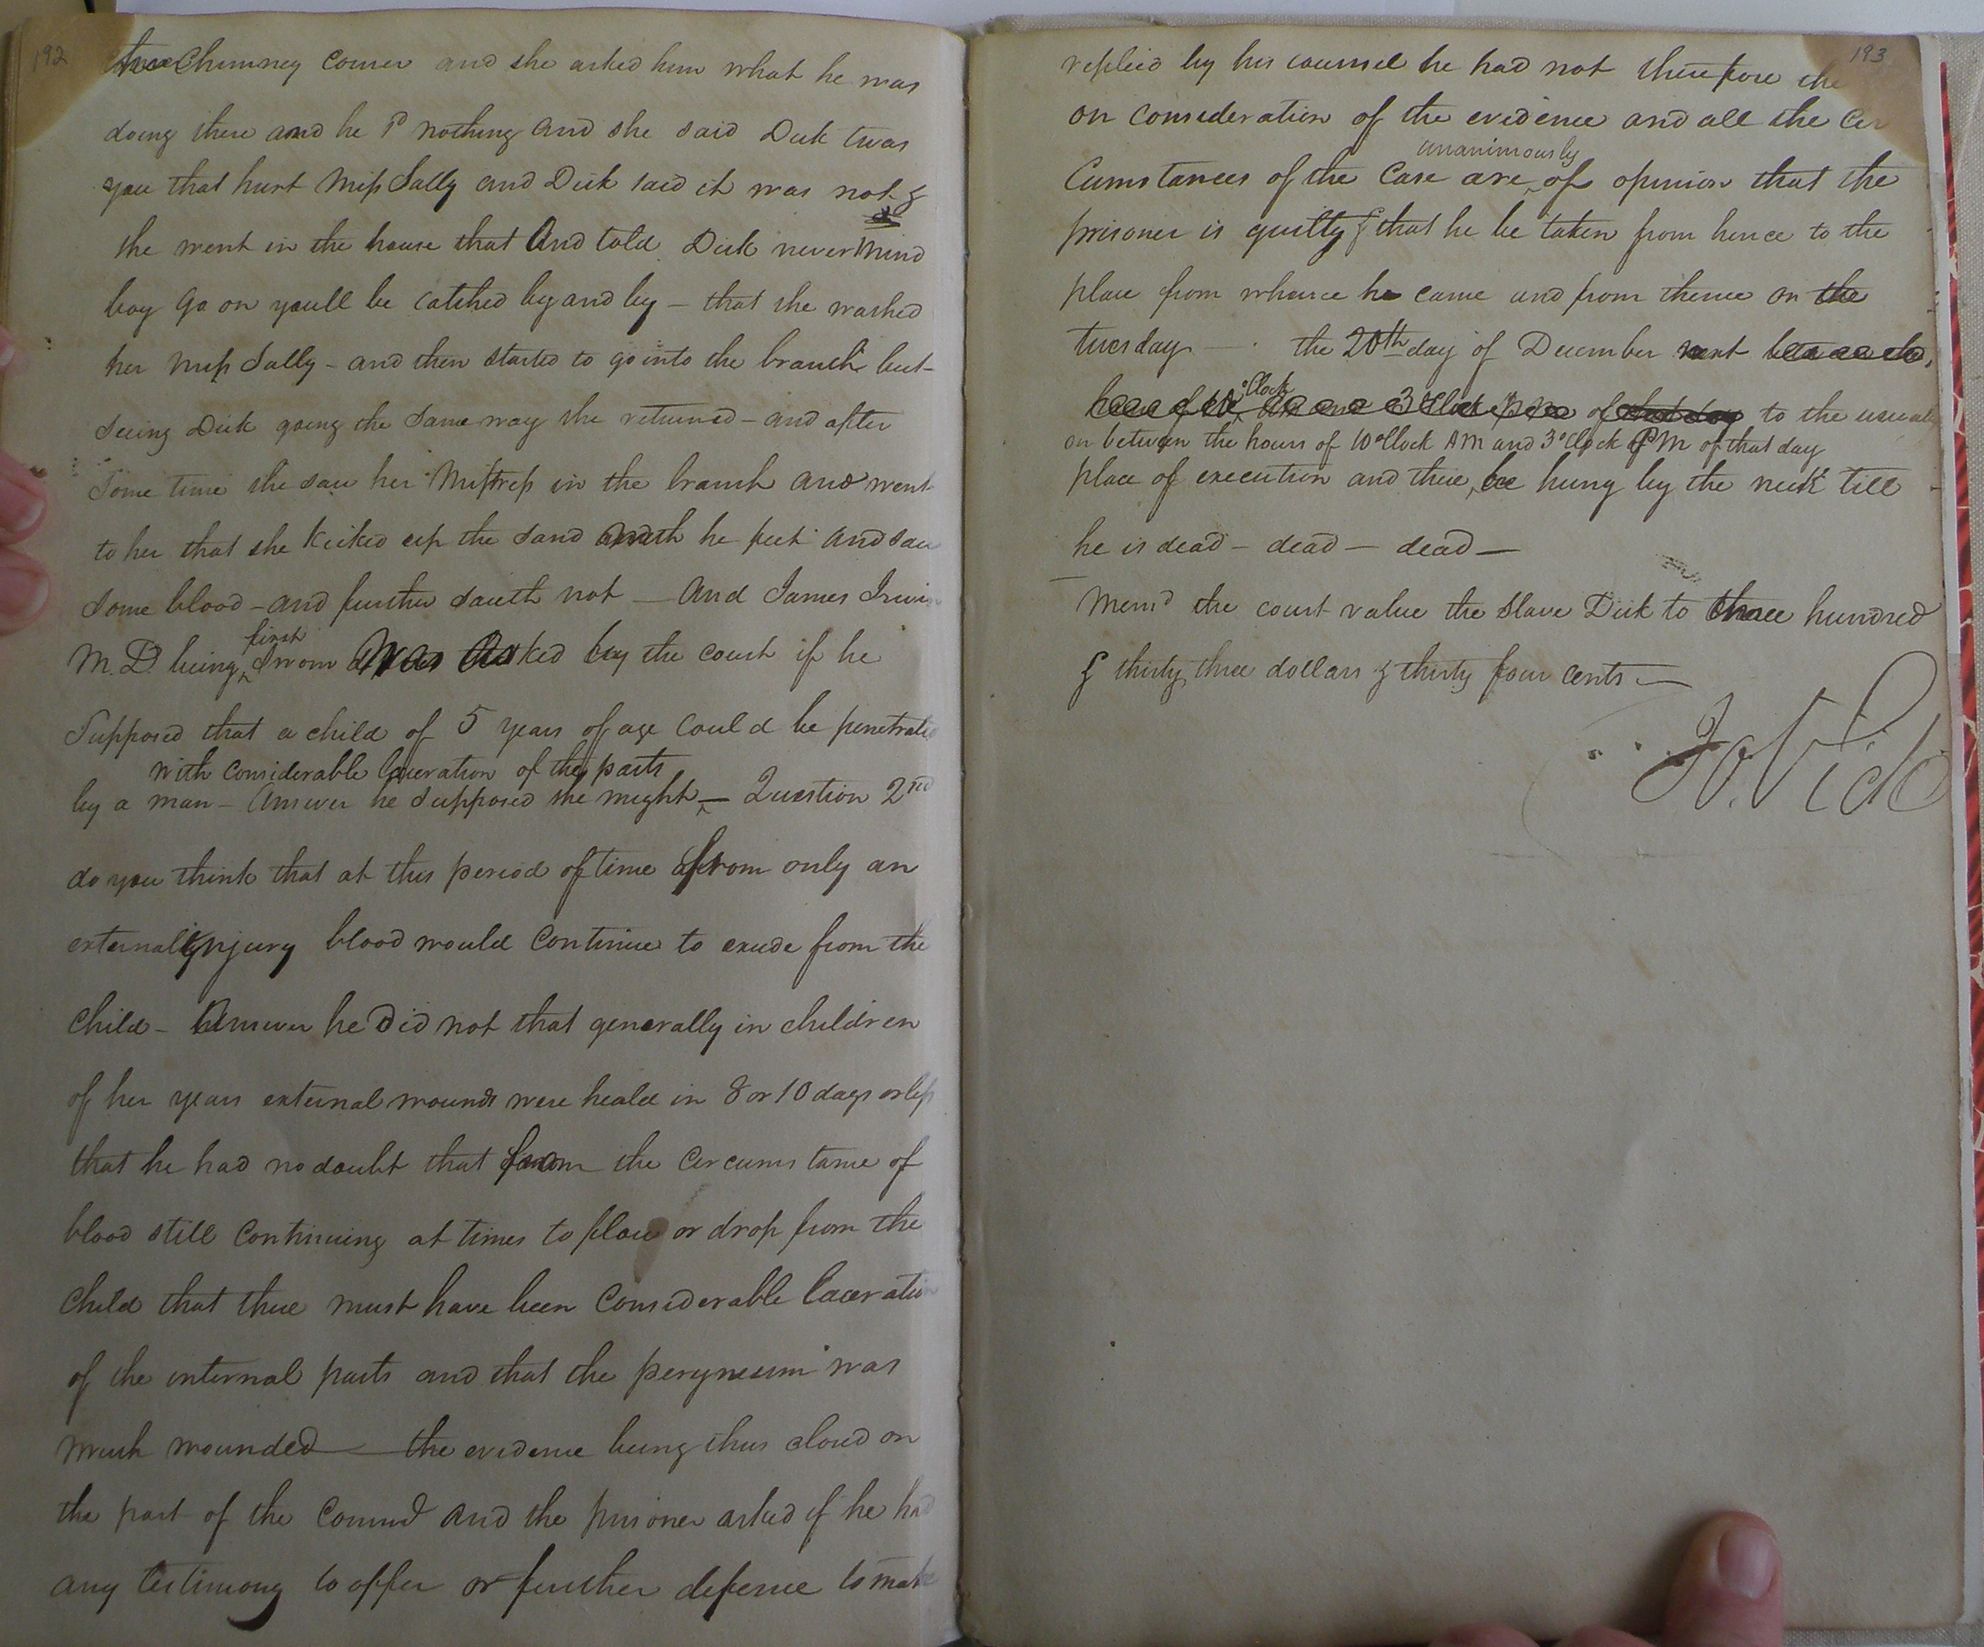 192
the Chimney corner and she asked him what he was
doing there and he sd nothing and she said Dick twas
you that hurt Miss Sally and Dick said it was not &
she went in the house that And told Dick never mind
boy go on youll be catched by and by – that she washed
her Miss Sally – and then started to go into the branch but
seeing Dick going the same way she returned – and after
some time she saw her Mistress in the branch and went
to her that she kicked up the sand with he feet and saw
some blood – and further saith not – And James Irwin
first
M.D. being sworn was asked by the court if he
supposed that a child of 5 years of age could be penetrated
with considerable laceration of the parts
by a man – Answer he supposed she might – Question 2nd
do you think that at this period of time from only an
external injury blood would continue to exude from the
child – Answer he did not that generally in children
of her years external wounds were heald in 8 or 10 days or less
that he had no doubt that from the circumstance of
blood still continuing at times to flow or drop from the
child that there must have been considerable laceration
of the internal parts and that the peryneum was
much wounded – the evidence being thus closed on
the part of the Commd and the prisoner asked if he had
any testimony to offer or further defence to make
193
replied by his counsel he had not therefore the
on consideration of the evidence and all the Cir
unanimously
Cumstances of the Case are of opinion that the
prisoner is guilty & that he be taken from hence to the
place from whence he came and from thence on the
tuesday – the 20th day of December next
o'Clock
3 of that day to the usual
on between the hours of 10 o'Clock AM and 3 o'Clock PM of that day
place of execution and there be hung by the neck till
he is dead – dead – dead –
Memd the court value the slave Dick to three hundred
& thirty three dollars & thirty four cents –
Jo. Vick